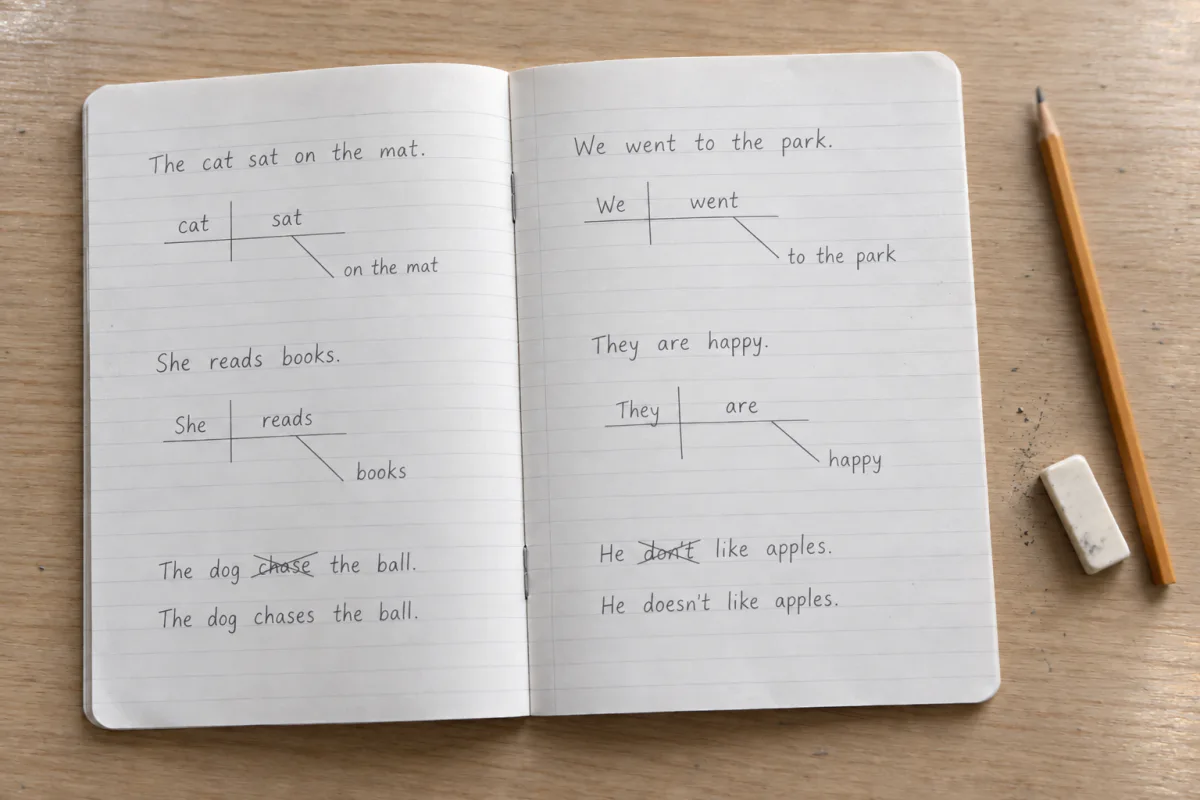 The cat sat on the mat.
cat sat
on the mat
She reads books.
She reads
books
The dog chase the ball.
The dog chases the ball.
We went to the park.
We went
to the park
They are happy.
They are
happy
He don't like apples.
He doesn't like apples.